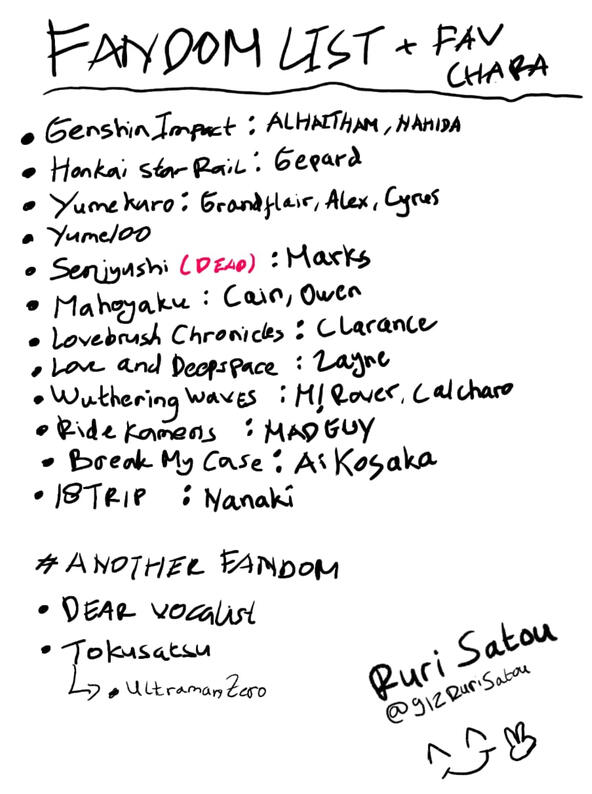 FANDOM LIST + FAV
CHARA
• Genshin Impact : ALHAITHAM, NAHIDA
• Honkai Star Rail : Gepard
• Yumekuro : Grandflair, Alex, Cyrus
• Yume100
• Senjyushi (DEAD) : Marks
• Mahoyaku : Cain, Owen
• Lovebrush Chronicles : Clarance
• Love and Deepspace : Zayne
• Wuthering WAVES : M! Rover, Calcharo
• Ride Kamens : MAD GUY
• Break My Case : Ai Kosaka
• 18TRIP : Nanaki
# ANOTHER FANDOM
• DEAR VOCALIST
• Tokusatsu
↳ • Ultraman Zero
Ruri Satou
@912RuriSatou